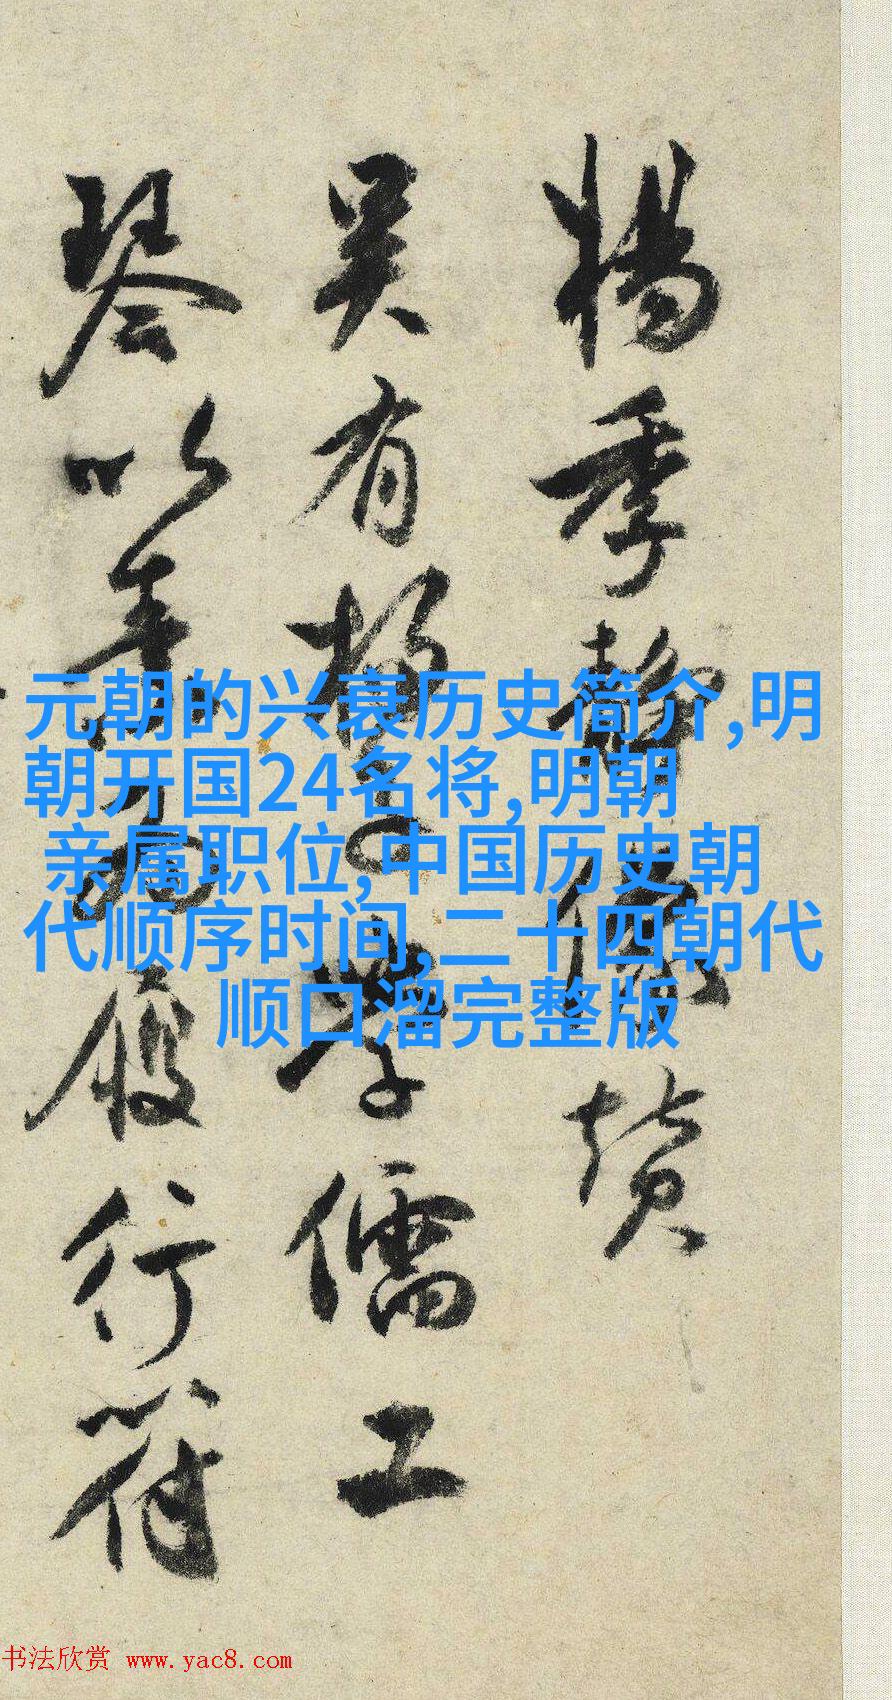 楊季静像贊
吴有楊子學儒工
琴以青為履行符
元朝的兴衰历史简介,明
朝开国24名将,明朝
亲属职位,中国历史朝
代顺序时间,二十四朝代
顺口溜完整版
书法欣赏 www.yac8.com